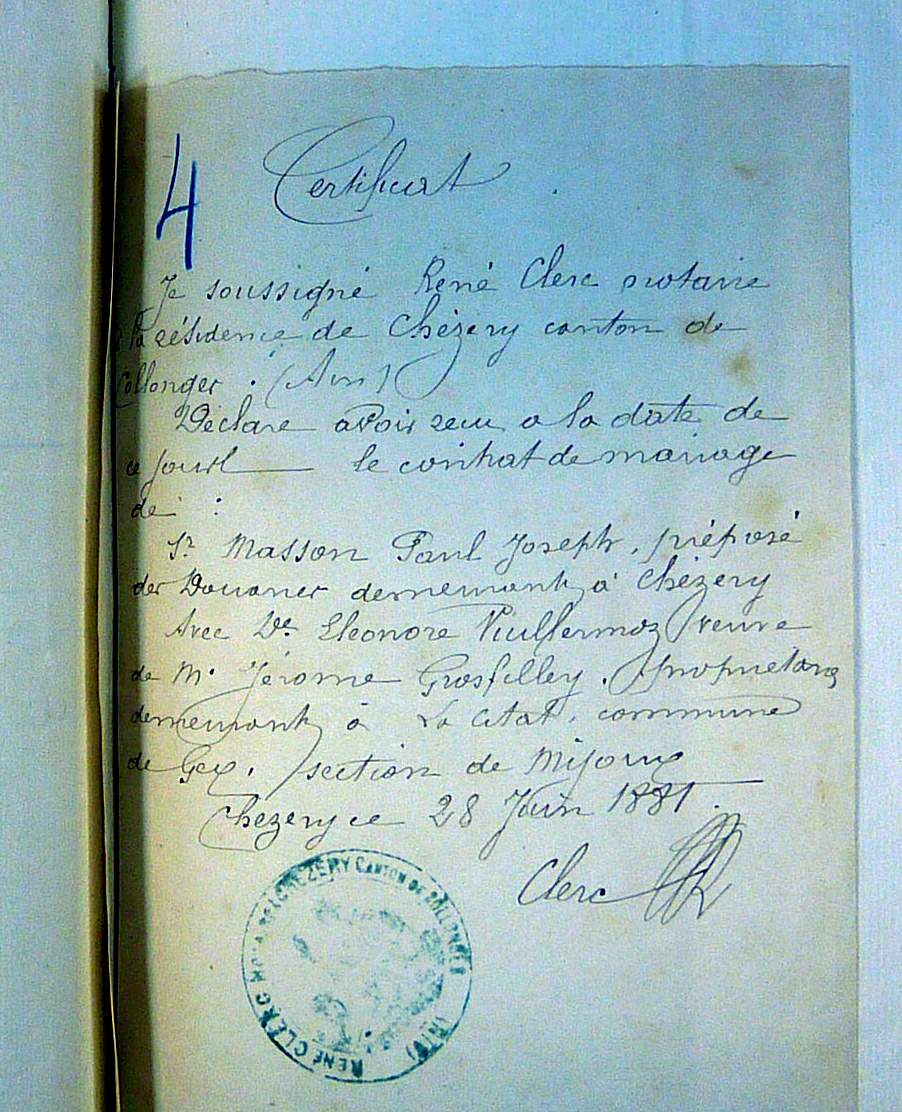 4
Certificat
Je soussigné René Clerc notaire
à la résidence de Chézery canton de
Collonges. (Ain)
Déclare avoir reçu a la date de
ce jour le contrat de mariage
de :
Sr Masson Paul Joseph, préposé
des Douanes demeurant à Chézery
Avec De Eleonore Vuillermoz veuve
de M. Jérome Grosfilley. propriétaire
demeurant à La Citat, commune
de Gex, section de Mijoux
Chezery ce 28 Juin 1881.
Clerc
RENÉ CLERC NOTAIRE A CHEZERY CANTON DE COLLONGES (AIN)